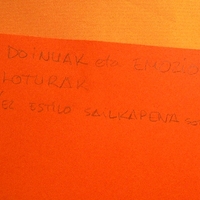 DOINUAK eta EMOZIO
LOTURAK
ESTILO SAILKAPENA